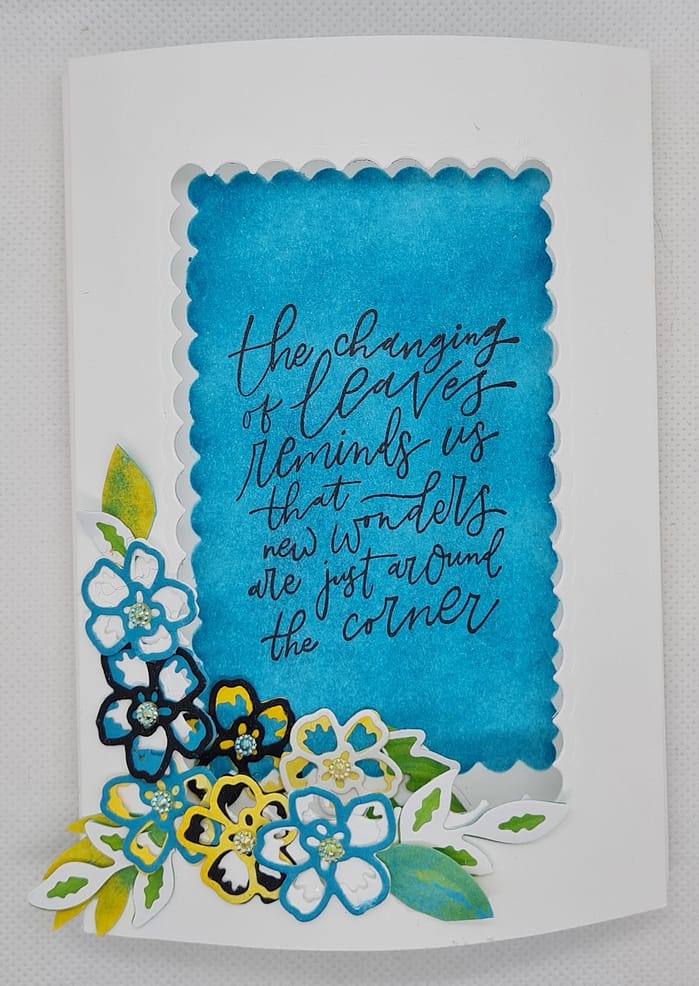 the changing
of leaves
reminds us
that wonders
new
are just around
the corner